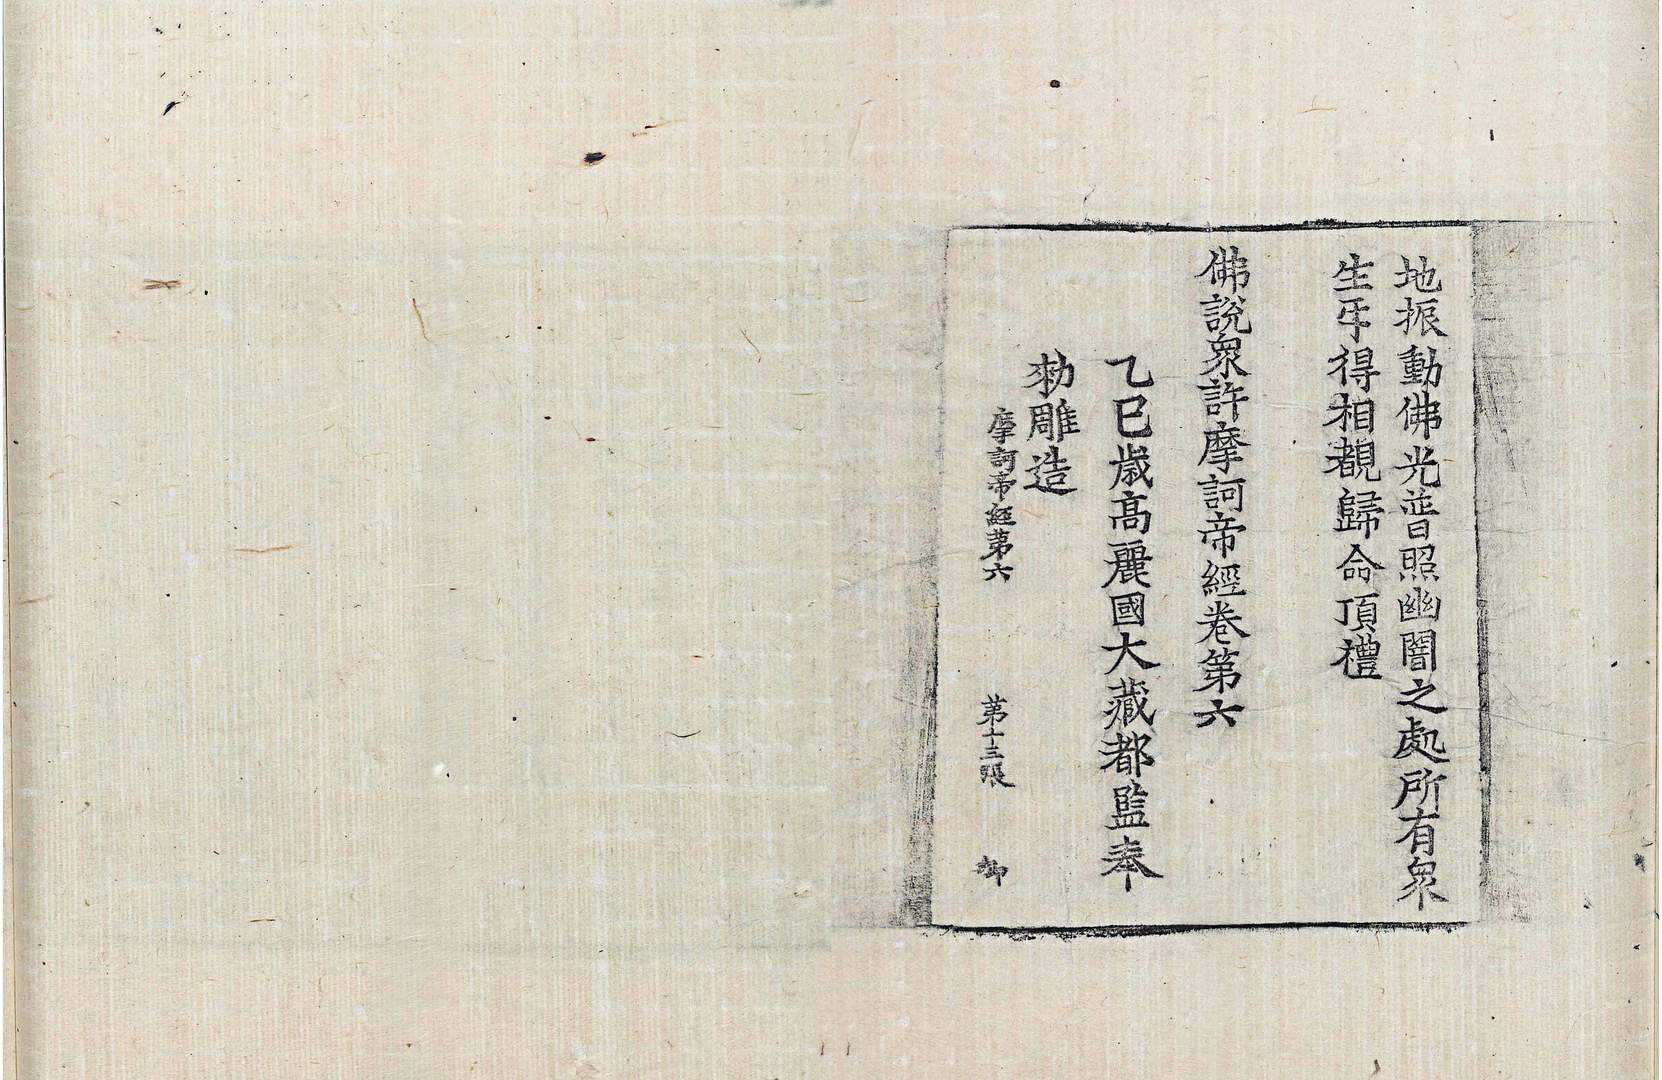 地振動佛光普照幽闇之處所有衆
生㸦得相覩歸命頂禮
佛說衆許摩訶帝經卷第六
乙巳歲高麗國大藏都監奉
勑雕造
摩訶帝經第六 第十三張 御